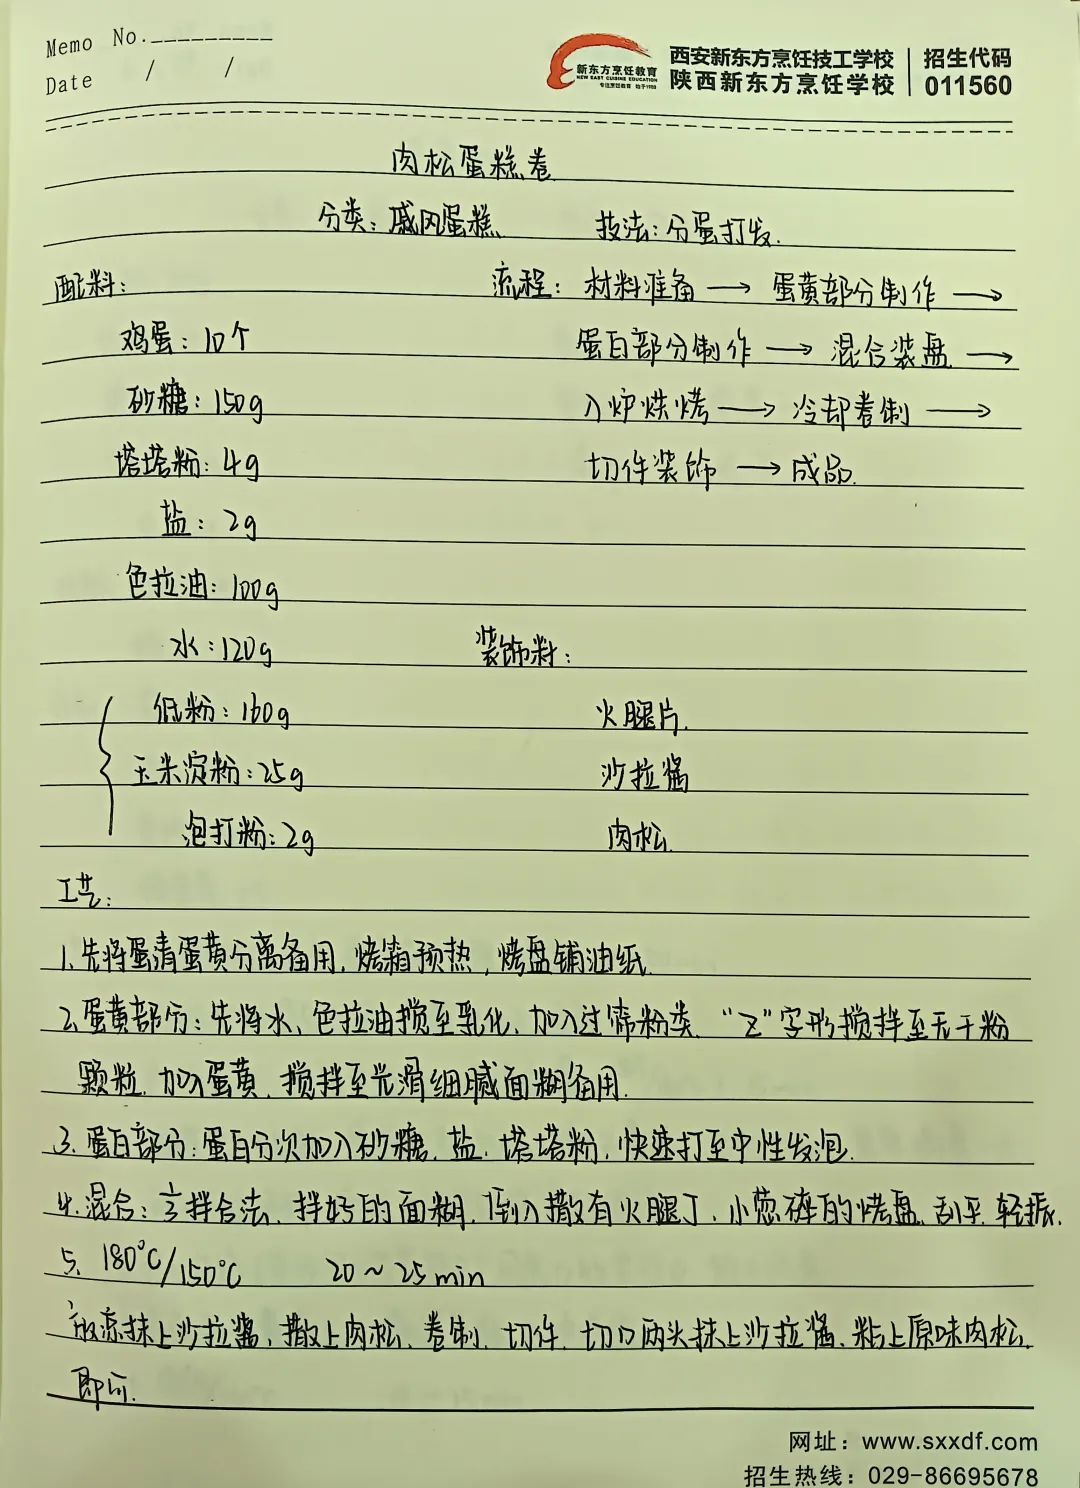 Memo No.__________
Date / /
新东方烹饪教育
NEW EAST CUISINE EDUCATION
西安新东方烹饪技工学校
陕西新东方烹饪学校
招生代码
011560
肉松蛋糕卷
分类：戚风蛋糕 技法：分蛋打发.
配料：
流程：材料准备 → 蛋黄部分制作 →
鸡蛋：10个
蛋白部分制作 → 混合装盘 →
砂糖：150g
入炉烘烤 → 冷却卷制 →
塔塔粉：4g
切件装饰 → 成品.
盐：2g
色拉油：100g
水：120g
装饰料：
低粉：160g
火腿片.
玉米淀粉：25g
沙拉酱
泡打粉：2g
肉松.
工艺：
1.先将蛋清蛋黄分离备用,烤箱预热,烤盘铺油纸.
2.蛋黄部分：先将水、色拉油搅至乳化,加入过筛粉类 “Z”字形搅拌至无干粉
颗粒,加入蛋黄,搅拌至光滑细腻面糊备用.
3.蛋白部分：蛋白分次加入砂糖、盐、塔塔粉,快速打至中性发泡.
4.混合：三拌合法,拌好的面糊,倒入撒有火腿丁、小葱碎的烤盘,刮平,轻振.
5、180℃/150℃ 20~25min
放凉抹上沙拉酱、撒上肉松、卷制、切件、切口两头抹上沙拉酱、粘上原味肉松
即可.
网址：www.sxxdf.com
招生热线：029-86695678